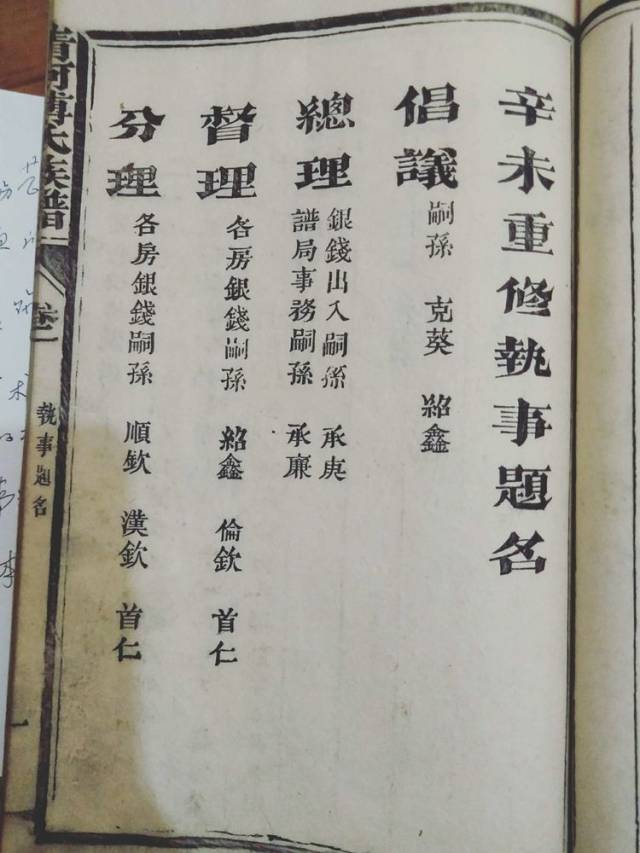 辛未重修執事題名
倡議 嗣孫 克葵 紹鑫
總理 銀錢出入嗣孫 承庚
譜局事務嗣孫 承廉
督理 各房銀錢嗣孫 紹鑫 倫欽 首仁
分理 各房銀錢嗣孫 順欽 漢欽 首仁
清河傅氏族譜 卷一 執事題名 一